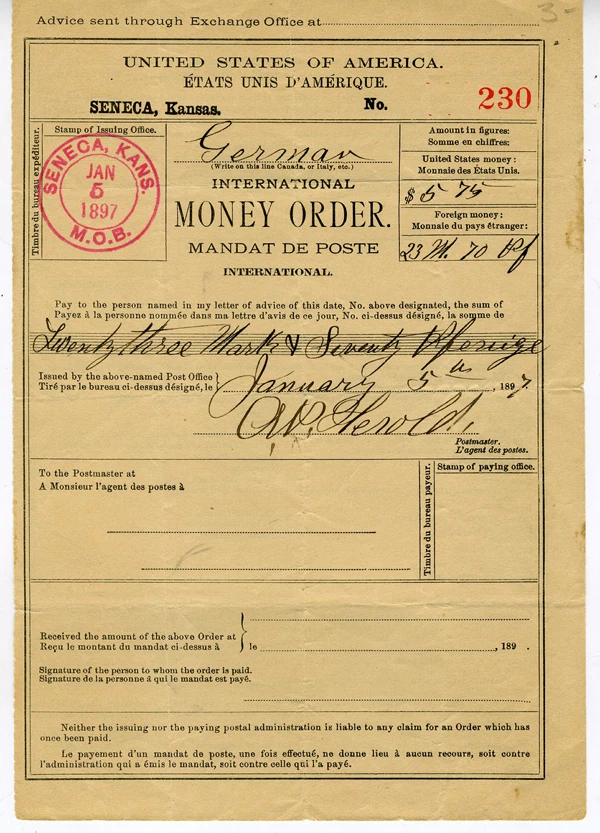 3-
Advice sent through Exchange Office at
UNITED STATES OF AMERICA.
ÉTATS UNIS D'AMÉRIQUE.
SENECA, Kansas.
No. 230
Timbre du bureau expéditeur.
Stamp of Issuing Office.
SENECA, KANS.
JAN
5
1897
M.O.B.
German
(Write on this line Canada, or Italy, etc.)
INTERNATIONAL
MONEY ORDER.
MANDAT DE POSTE
INTERNATIONAL.
Amount in figures:
Somme en chiffres:
United States money:
Monnaie des États Unis.
$ 5 75
Foreign money:
Monnaie du pays étranger:
23 M. 70 Pf
Pay to the person named in my letter of advice of this date, No. above designated, the sum of
Payez à la personne nommée dans ma lettre d'avis de ce jour, No. ci-dessus désigné, la somme de
Twenty three Mark & Seventy Pfenige
Issued by the above-named Post Office
Tiré par le bureau ci-dessus désigné, le
January 5th, 1897.
AW. Herold,
Postmaster.
L'agent des postes.
To the Postmaster at
A Monsieur l'agent des postes à
Timbre du bureau payeur.
Stamp of paying office.
Received the amount of the above Order at
Reçu le montant du mandat ci-dessus à
le , 189 .
Signature of the person to whom the order is paid.
Signature de la personne à qui le mandat est payé.
Neither the issuing nor the paying postal administration is liable to any claim for an Order which has
once been paid.
Le payement d'un mandat de poste, une fois effectué, ne donne lieu à aucun recours, soit contre
l'administration qui a émis le mandat, soit contre celle qui l'a payé.